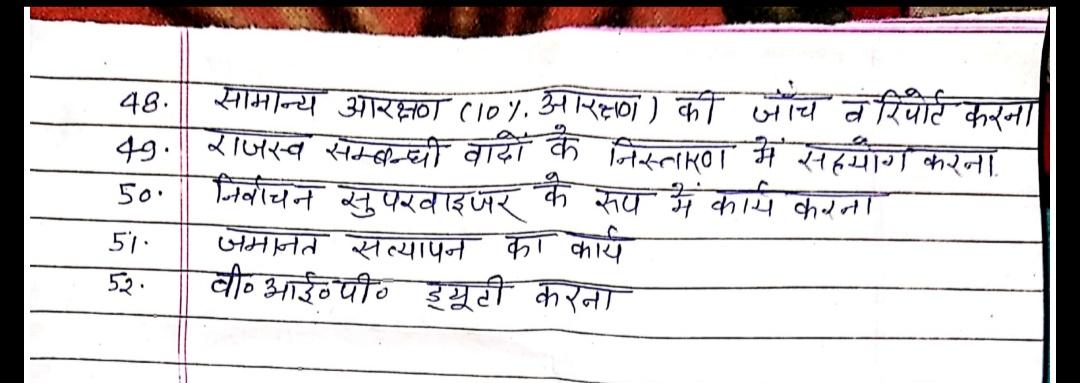 48. सामान्य आरक्षण (10%. आरक्षण) की जाँच व रिपोर्ट करना
49. राजस्व सम्बन्धी वादों के निस्तारण में सहयोग करना.
50. निर्वाचन सुपरवाइजर के रूप में कार्य करना
51. जमानत सत्यापन का कार्य
52. वी० आई० पी० ड्यूटी करना